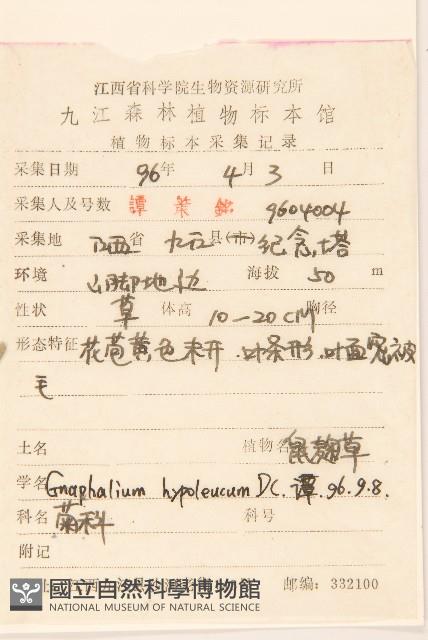 江西省科学院生物资源研究所
九江森林植物标本馆
植物标本采集记录
采集日期 96年 4月 3 日
采集人及号数 譚策铭 9604004
采集地 江西省 九江县(市) 纪念塔
环境 山脚地边 海拔 50 m
性状 草 体高 10—20 CM 胸径
形态特征 花苞黄色未开.叶条形.叶面密被
毛
土名 植物名 鼠麴草
学名 Gnaphalium hypoleucum DC. 譚.96.9.8.
科名 菊科 科号
附记
邮编：332100
國立自然科學博物館
NATIONAL MUSEUM OF NATURAL SCIENCE